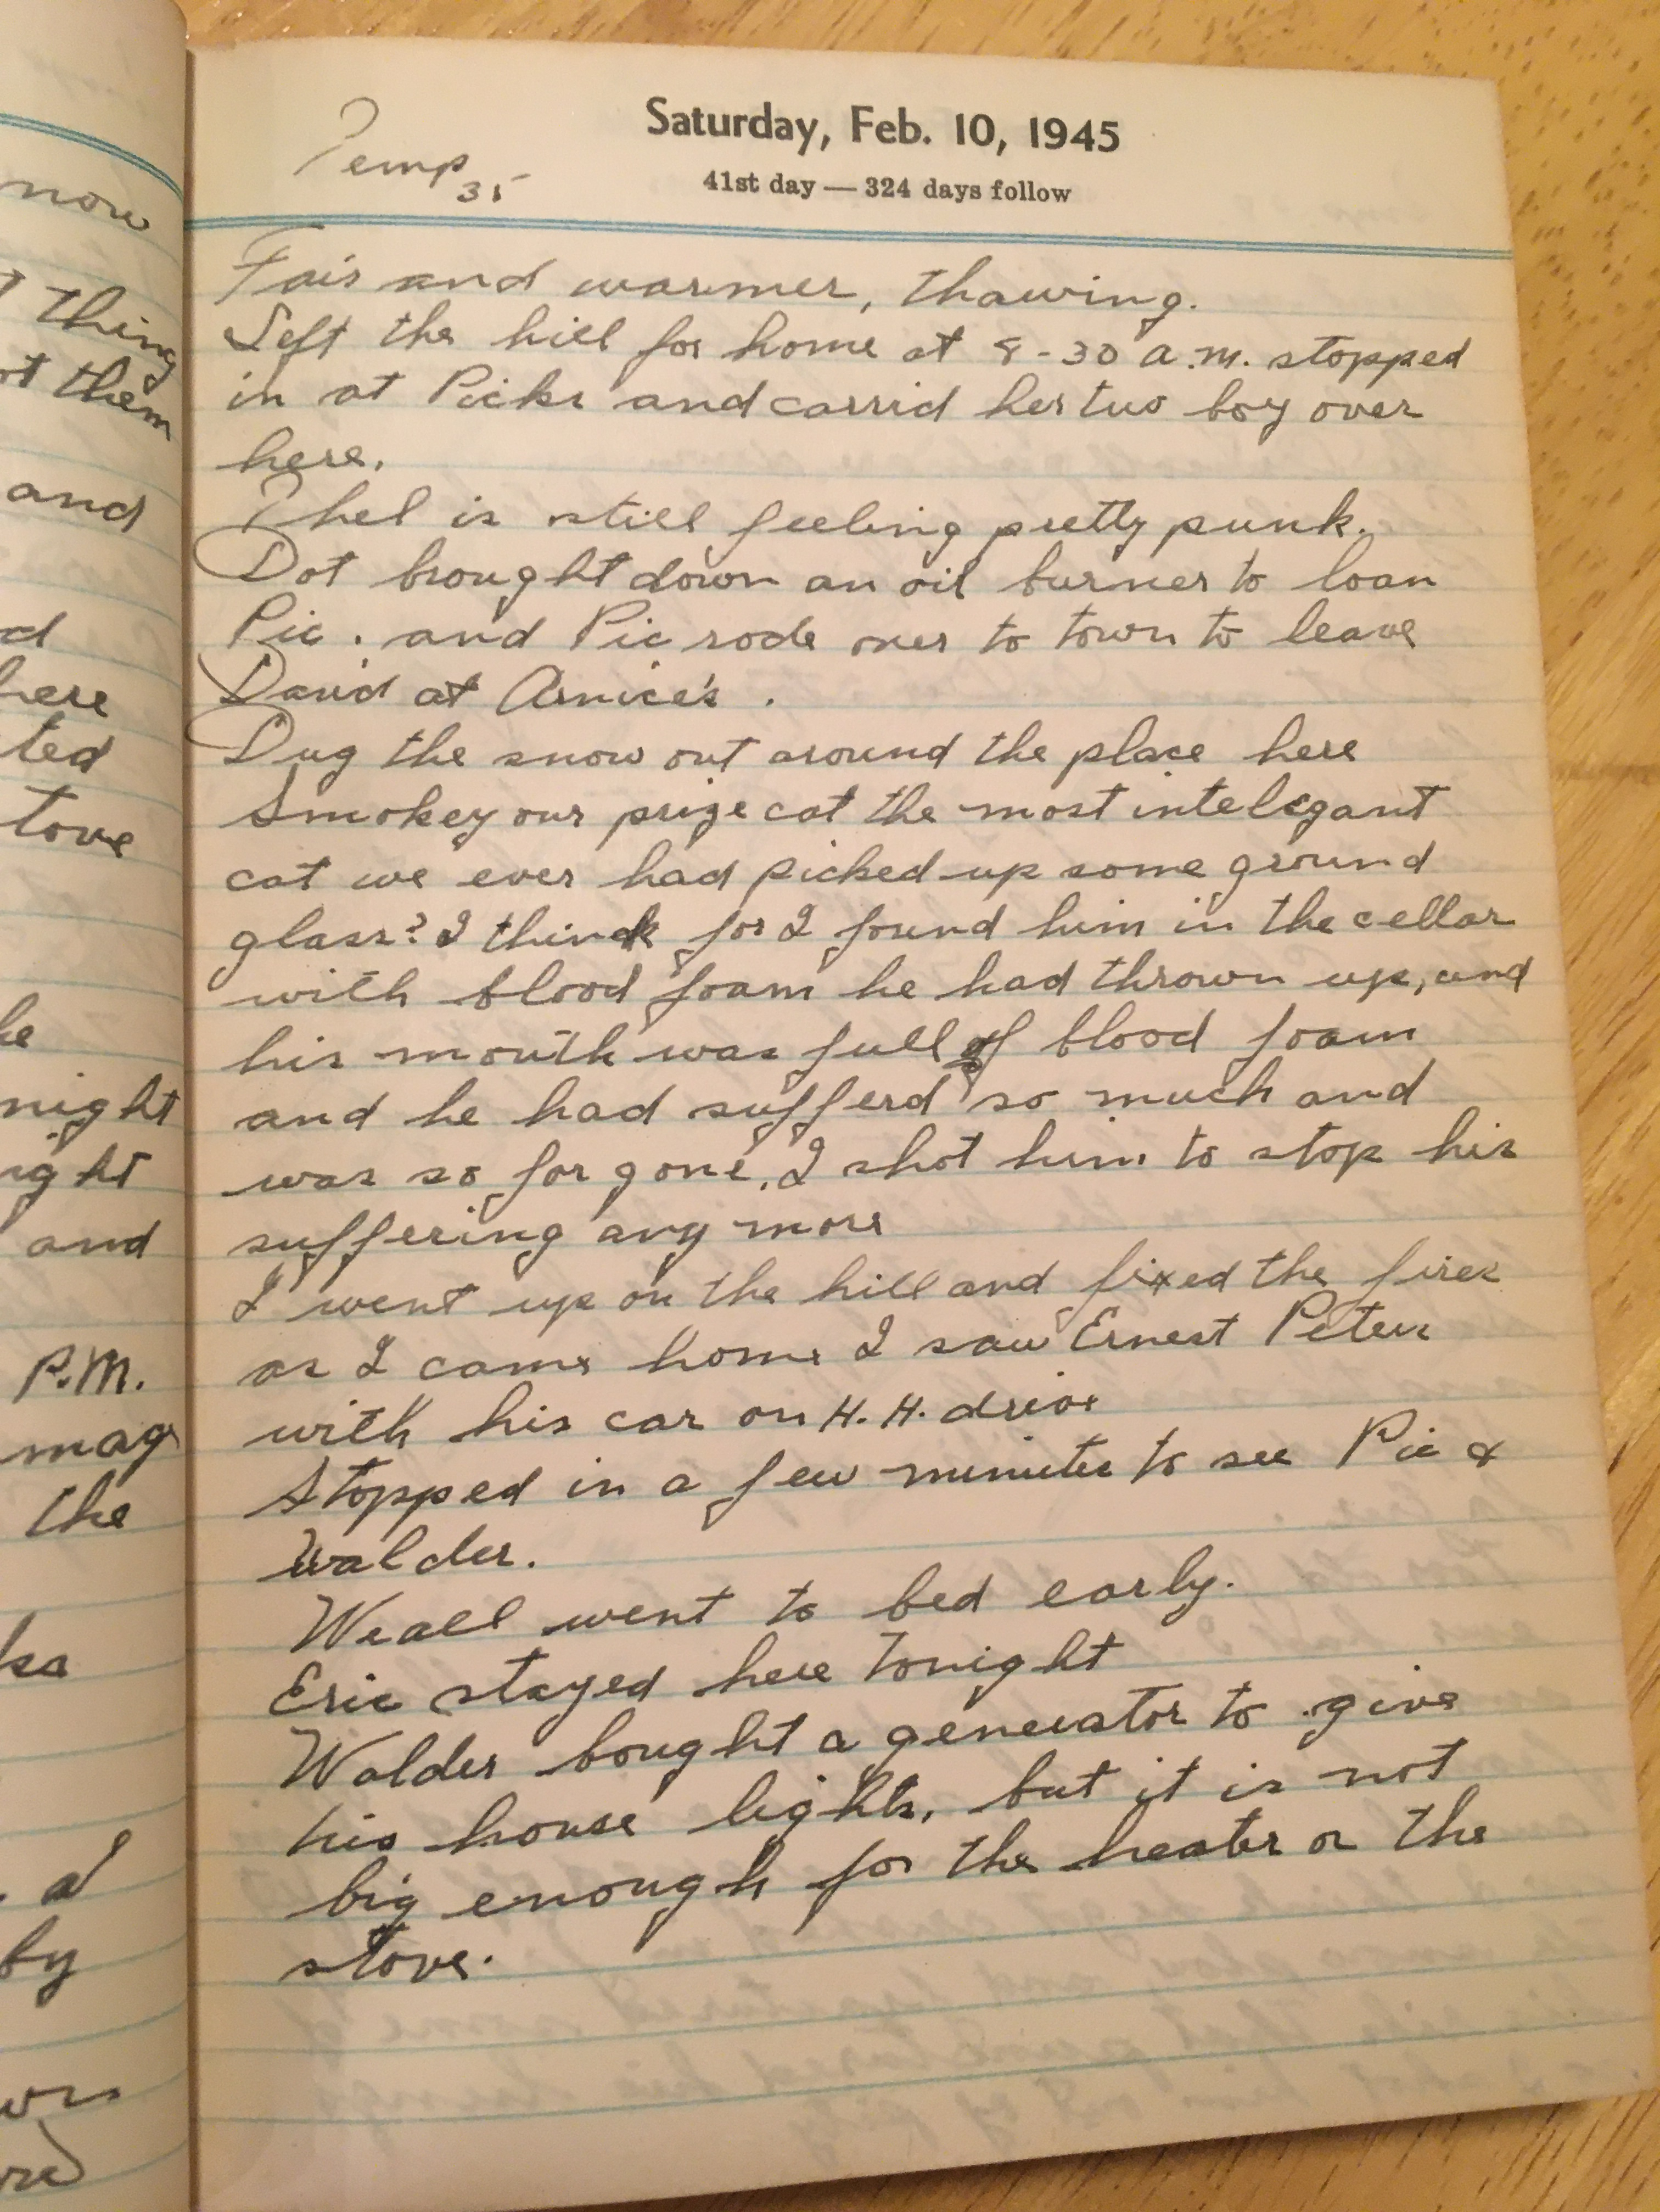 now
thing
ot them
and
d
here
ted
tove
he
night
ight
and
P.M.
mag
the
ks
a
by
Saturday, Feb. 10, 1945
Temp 35
41st day — 324 days follow
Fair and warmer, thawing.
Left the hill for home at 8-30 a.m. stopped
in at Picks and carrid her two boy over
here.
Thel is still feeling pretty punk.
Dot brought down an oil burner to loan
Pic. and Pic rode over to town to leave
David at Arnice's.
Dug the snow out around the place here
Smokey our prize cat the most intelegant
cat we ever had picked up some ground
glass? I think for I found him in the cellar
with blood foam he had thrown up, and
his mouth was full of blood foam
and he had sufferd so much and
was so far gone, I shot him to stop his
suffering any more
I went up on the hill and fixed the fires
as I came home I saw Ernest Peters
with his car on H. H. drive
Stopped in a few minutes to see Pic &
Walder.
We all went to bed early.
Eric stayed here tonight
Walder bought a generator to give
his house lights, but it is not
big enough for the heater or the
stove.